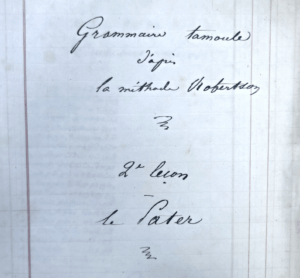 Grammaire tamoule
d'après
la méthode Robertson
2e leçon
le Pater